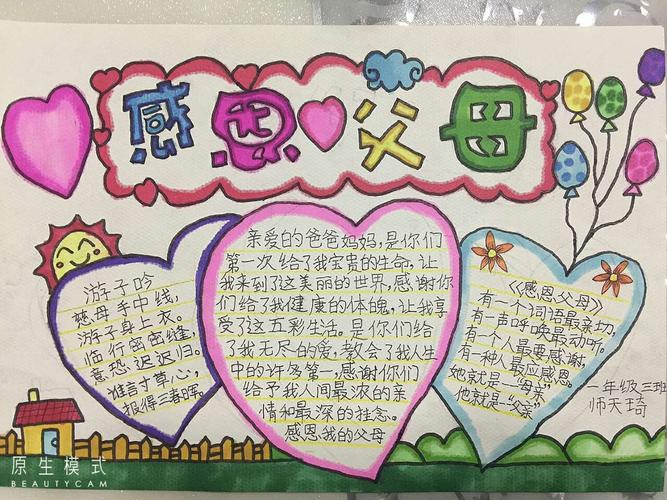 感恩父母
游子吟
慈母手中线,
游子身上衣。
临行密密缝,
意恐迟迟归。
谁言寸草心,
报得三春晖。
亲爱的爸爸妈妈,是你们
第一次给了我宝贵的生命,让
我来到了这美丽的世界,感谢你
们给了我健康的体魄,让我享
受了这五彩生活。是你们给
了我无尽的爱,教会了我人生
中的许多第一,感谢你们
给予我人间最浓的亲
情和最深的挂念。
感恩,我的父母
《感恩父母》
有一个词语最亲切,
有一声呼唤最动听。
有一个人最要感谢,
有一种人最应感恩。
她就是—“母亲”
他就是—“父亲”
一年级三班
师天琦
原生模式
BEAUTYCAM